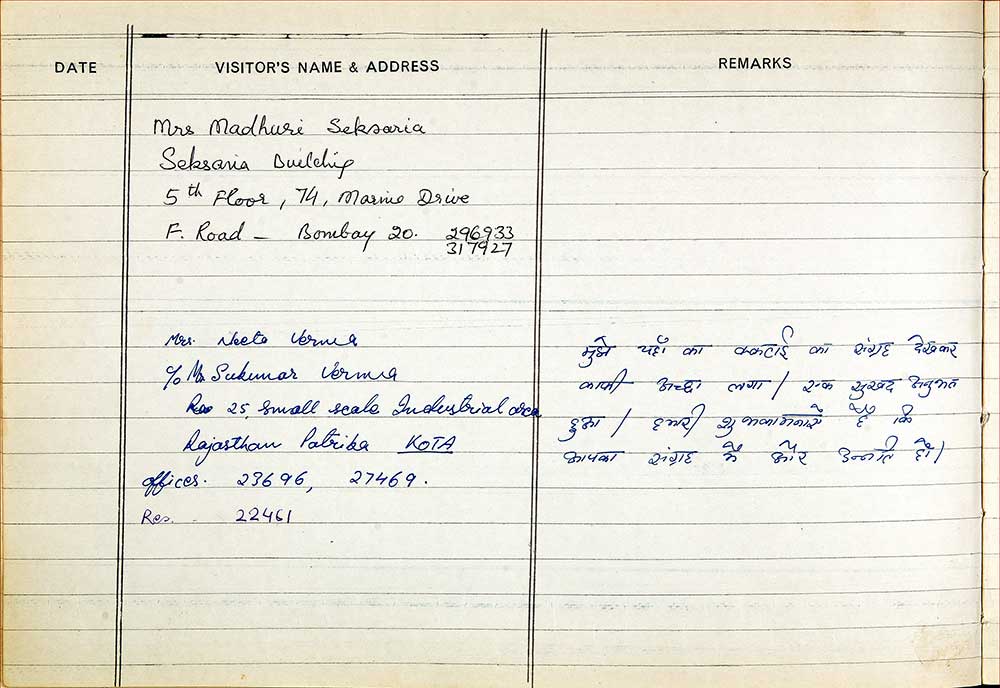 DATE VISITOR'S NAME & ADDRESS REMARKS
Mrs Madhuri Seksaria
Seksaria Building
5th Floor, 74, Marine Drive
F. Road - Bombay 20. 296933
317927
Mrs. Neeta Verma
c/o Mr Sukumar Verma
25, Small scale Industrial area
Rajasthan Patrika KOTA
offices. 23696, 27469.
Res. 22461
मुझे यहाँ का का संग्रह देखकर
काफी अच्छा लगा। एक सुखद अनुभव
हुआ। हमारी शुभकामनायें है कि
आपका संग्रह में और उन्नति हो।